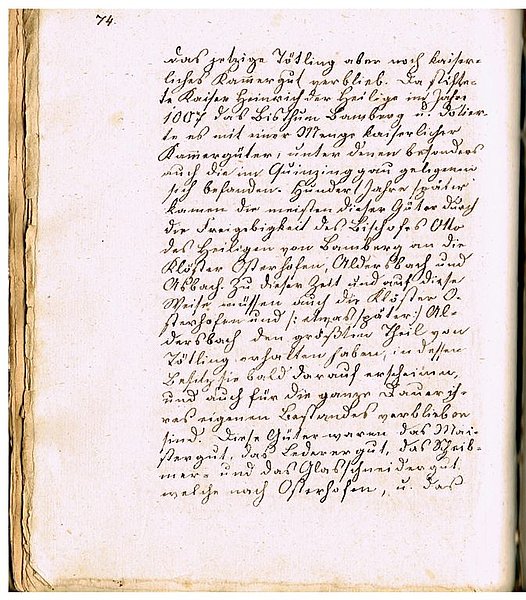 74.
das jetzige Tötling aber noch kaiser-
liches Kammergut verblieb. Da stifte-
te Kaiser Heinrich der Heilige im Jahre
1007 das Bisthum Bamberg u. dotier-
te es mit einer Menge kaiserlicher
Kamergüter, unter denen besonders
auch die im Quinzinggau gelegenen
sich befanden. Hundert Jahre später
kamen die meisten dieser Güter durch
die Freigebigkeit des Bischofes Otto
des Heiligen von Bamberg an die
Klöster Osterhofen, Aldersbach und
Asbach. Zu dieser Zeit und auf diese
Weise müssen auch die Klöster O-
sterhofen und /: etwas später :/ Al-
dersbach den größten Theil von
Tötling erhalten haben, in dessen
Besitz sie bald darauf erscheinen,
und auch für die ganze Dauer ih-
res eigenen Bestandes verblieben
sind. Diese Güter waren das Mai-
stergut, das Lederergut, das Scheib-
mer- und das Glasschneidergut,
welche nach Osterhofen, u. das